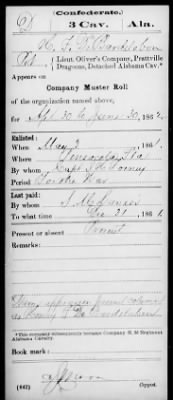 (Confederate.)
D 3 Cav. Ala.
H. F. DeBardeleben
Pvt., Lieut. Oliver's Company, Prattville Dragoons, Detached Alabama Cav.*
Appears on
Company Muster Roll
of the organization named above,
for Apl 30 to June 30, 1862.
Enlisted:
When May 3, 1861.
Where Pensacola, Fla
By whom Capt
Period For the War
Last paid:
By whom
To what time Dec 31, 1861.
Present or absent Present
Remarks:
as Henry F. De Bardelaben
*This company subsequently became Company H, 3d Regiment Alabama Cavalry.
Book mark:
(642) Copyist.